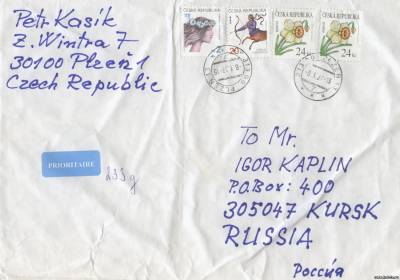 Petr Kasík
Z. Wintra 7
30100 Plzeň 1
Czech Republic
ČESKÁ REPUBLIKA
ČESKÁ REPUBLIKA
ČESKÁ REPUBLIKA
24 Kč
ČESKÁ REPUBLIKA
24 Kč
PRIORITAIRE
235 g
To Mr.
IGOR KAPLIN
P.O.Box: 400
305047 KURSK
RUSSIA
Россия